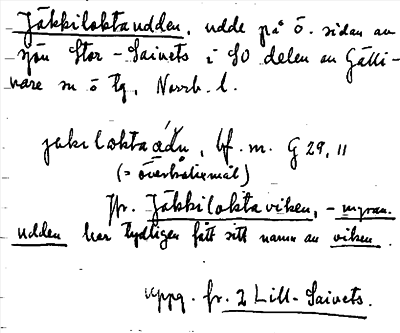 Jäkkiloktaudden, udde på ö. sidan av
sjön Stor-Saivets i SO delen av Gälli-
vare sn o tg, Norrb. l.
jaki lǫktaǫ́dn, bf. m. G 29, 11
(= överkalixmål)
Jfr. Jäkkiloktaviken, - myran.
udden har tydligen fått sitt namn av viken.
Uppg. fr. 2 Lill-Saivets.